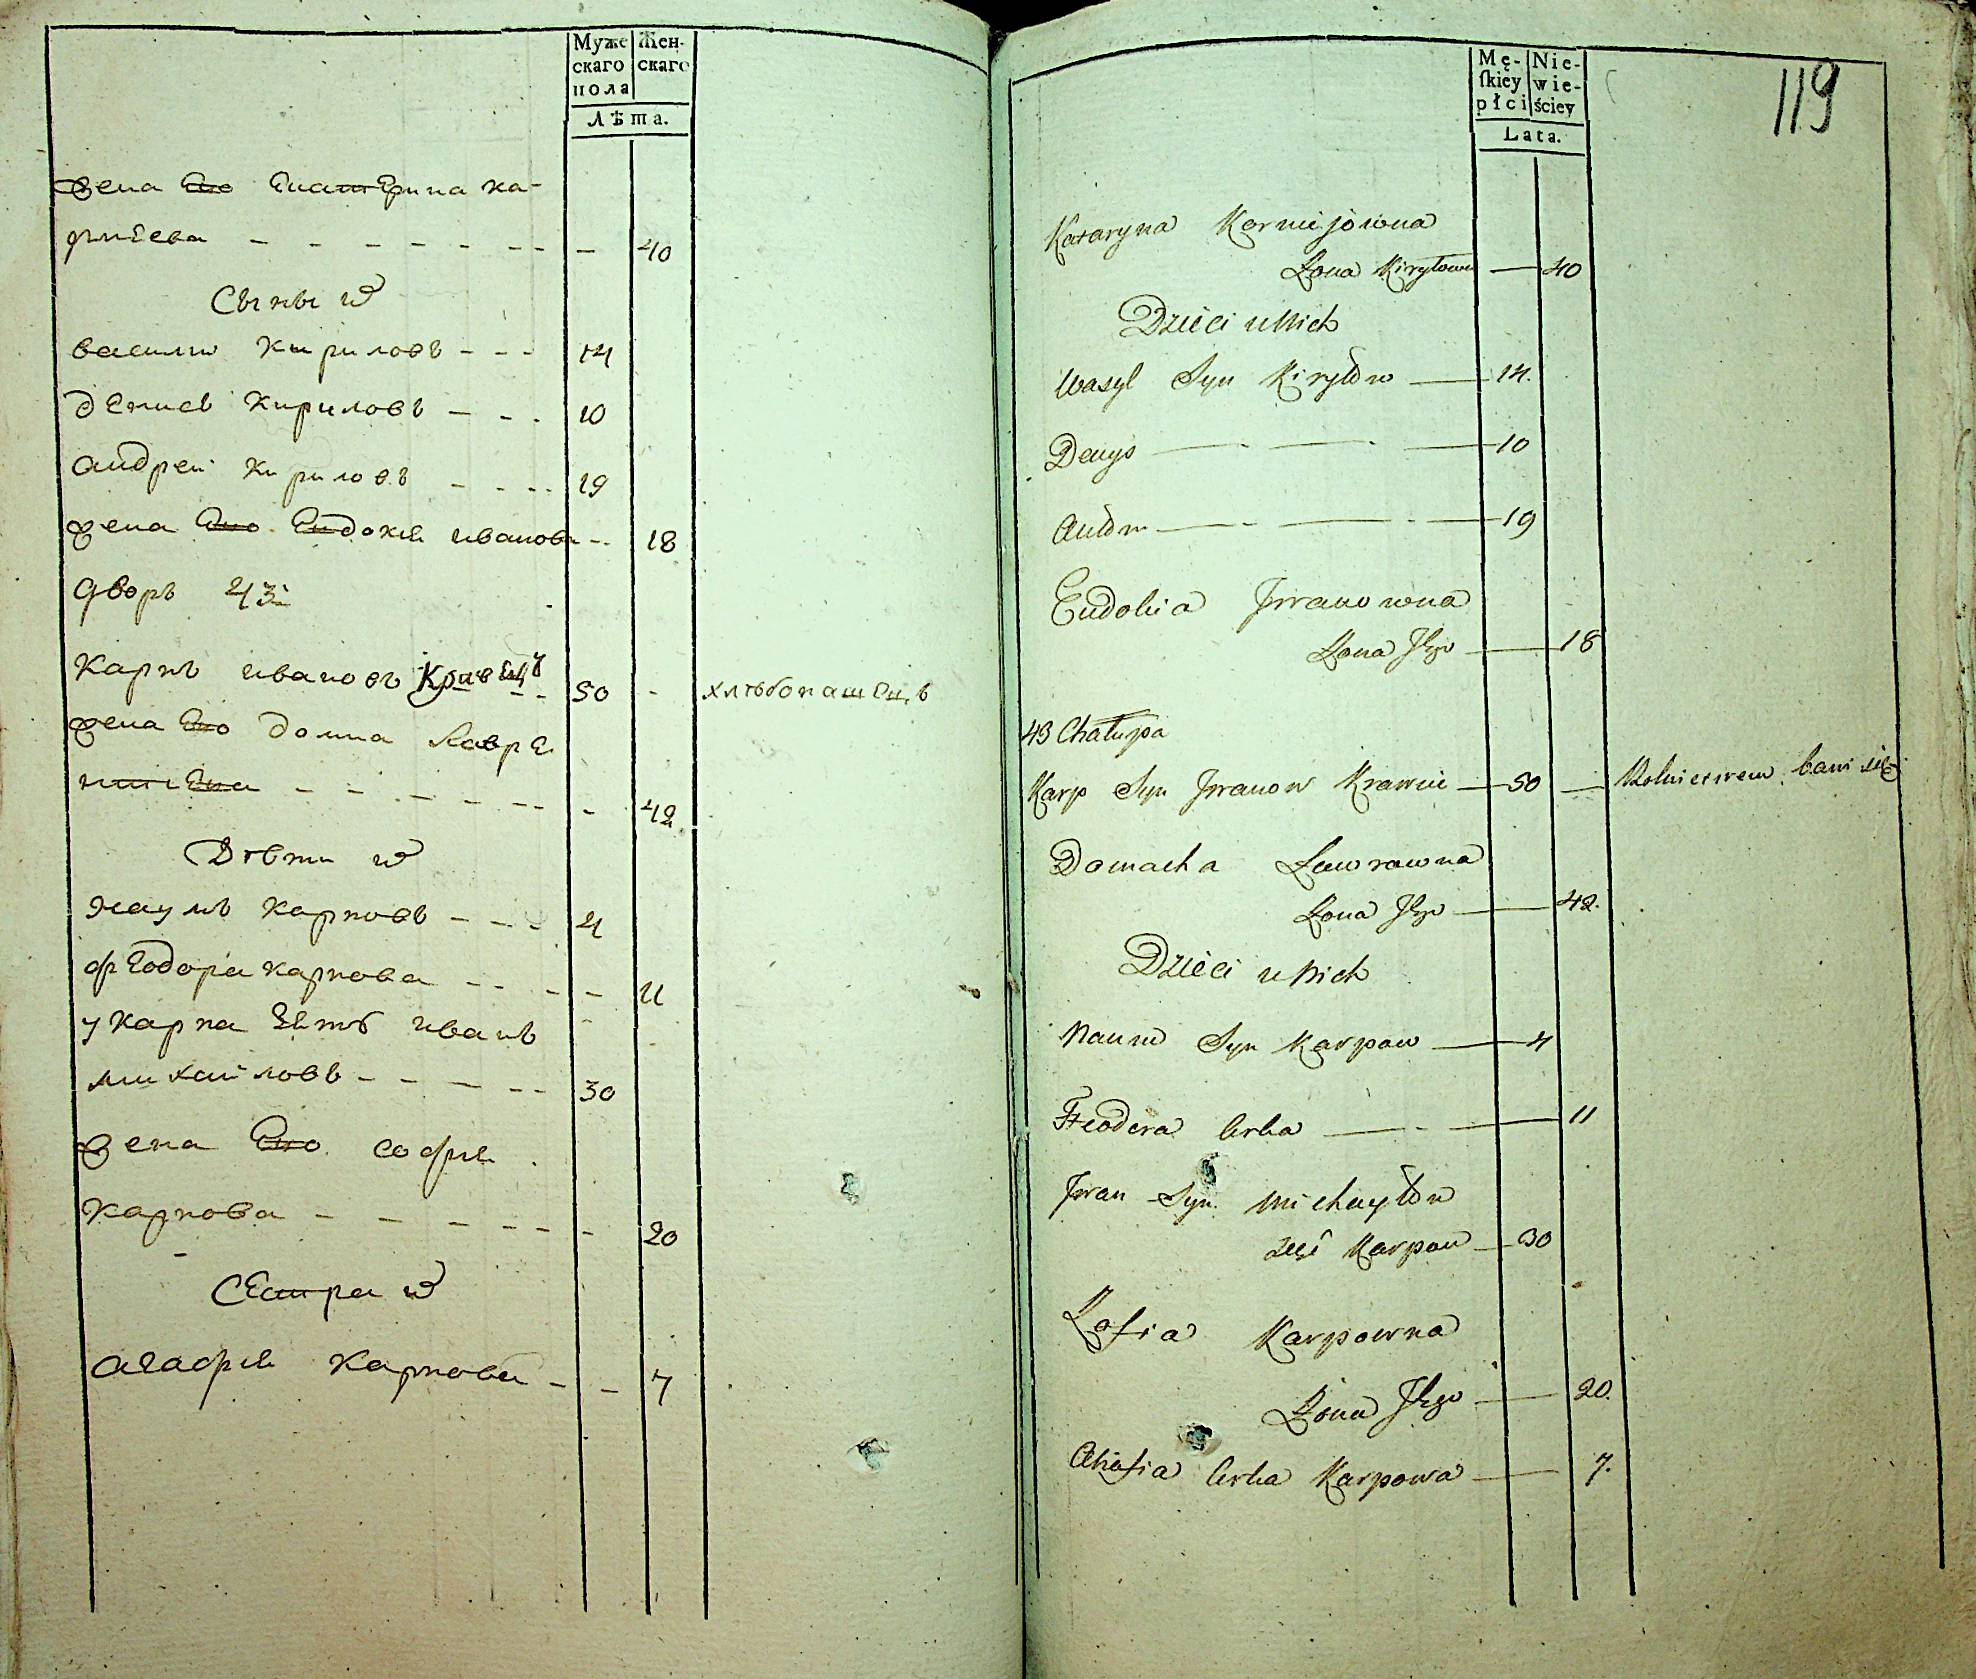 Муже Жен-
скаго скаго
пола
Лѣта.
жена Его Екатерина ка-
рнѣева - - - - - - - - 40
Сыны и҃х
василии Кириловъ - - - 14
денисъ Кириловъ - - - 10
андрей Кириловъ - - - - 19
жена Его Евдокия иванова - - 18
дворъ 43й
Карпъ ивановъ Кравецъ - - 50 - хлѣбопашецъ
жена Его домна Лавре
нтиева - - - - - - - - 42
Дѣти и҃х
наумъ Карповъ - - - - 4
феодора карпова - - - - - 11
у карпа зять иванъ
михайловъ - - - - - - 30
жена Его софия
карпова - - - - - - - 20
Сестра
агафия Карпова - - 7
119
Mę- Nie-
ſkiey wie-
płci ściey
Lata.
Kataryna Korniejowna
Żona Kiryłowa — 40
Dzieci u Nich
Wasyl Syn Kiryłow — 14.
Denys — — — 10
— — — 19
Eudokia Jwanowna
Żona Jego — 18
43 Chałupa
Karp Syn Jwanow Krawiec — 50 — Rolnictwem bawi się
Domacha Ławrowna
Żona Jego — 42.
Dzieci u Nich
Naum Syn Karpow — 4
Fieodora Córka — - — 11
Jwan Syn Michayłow
Zięć Karpow — 30
Zofia Karpowna
Żona Jego — 20.
Ahafia Córka Karpowa — 7.